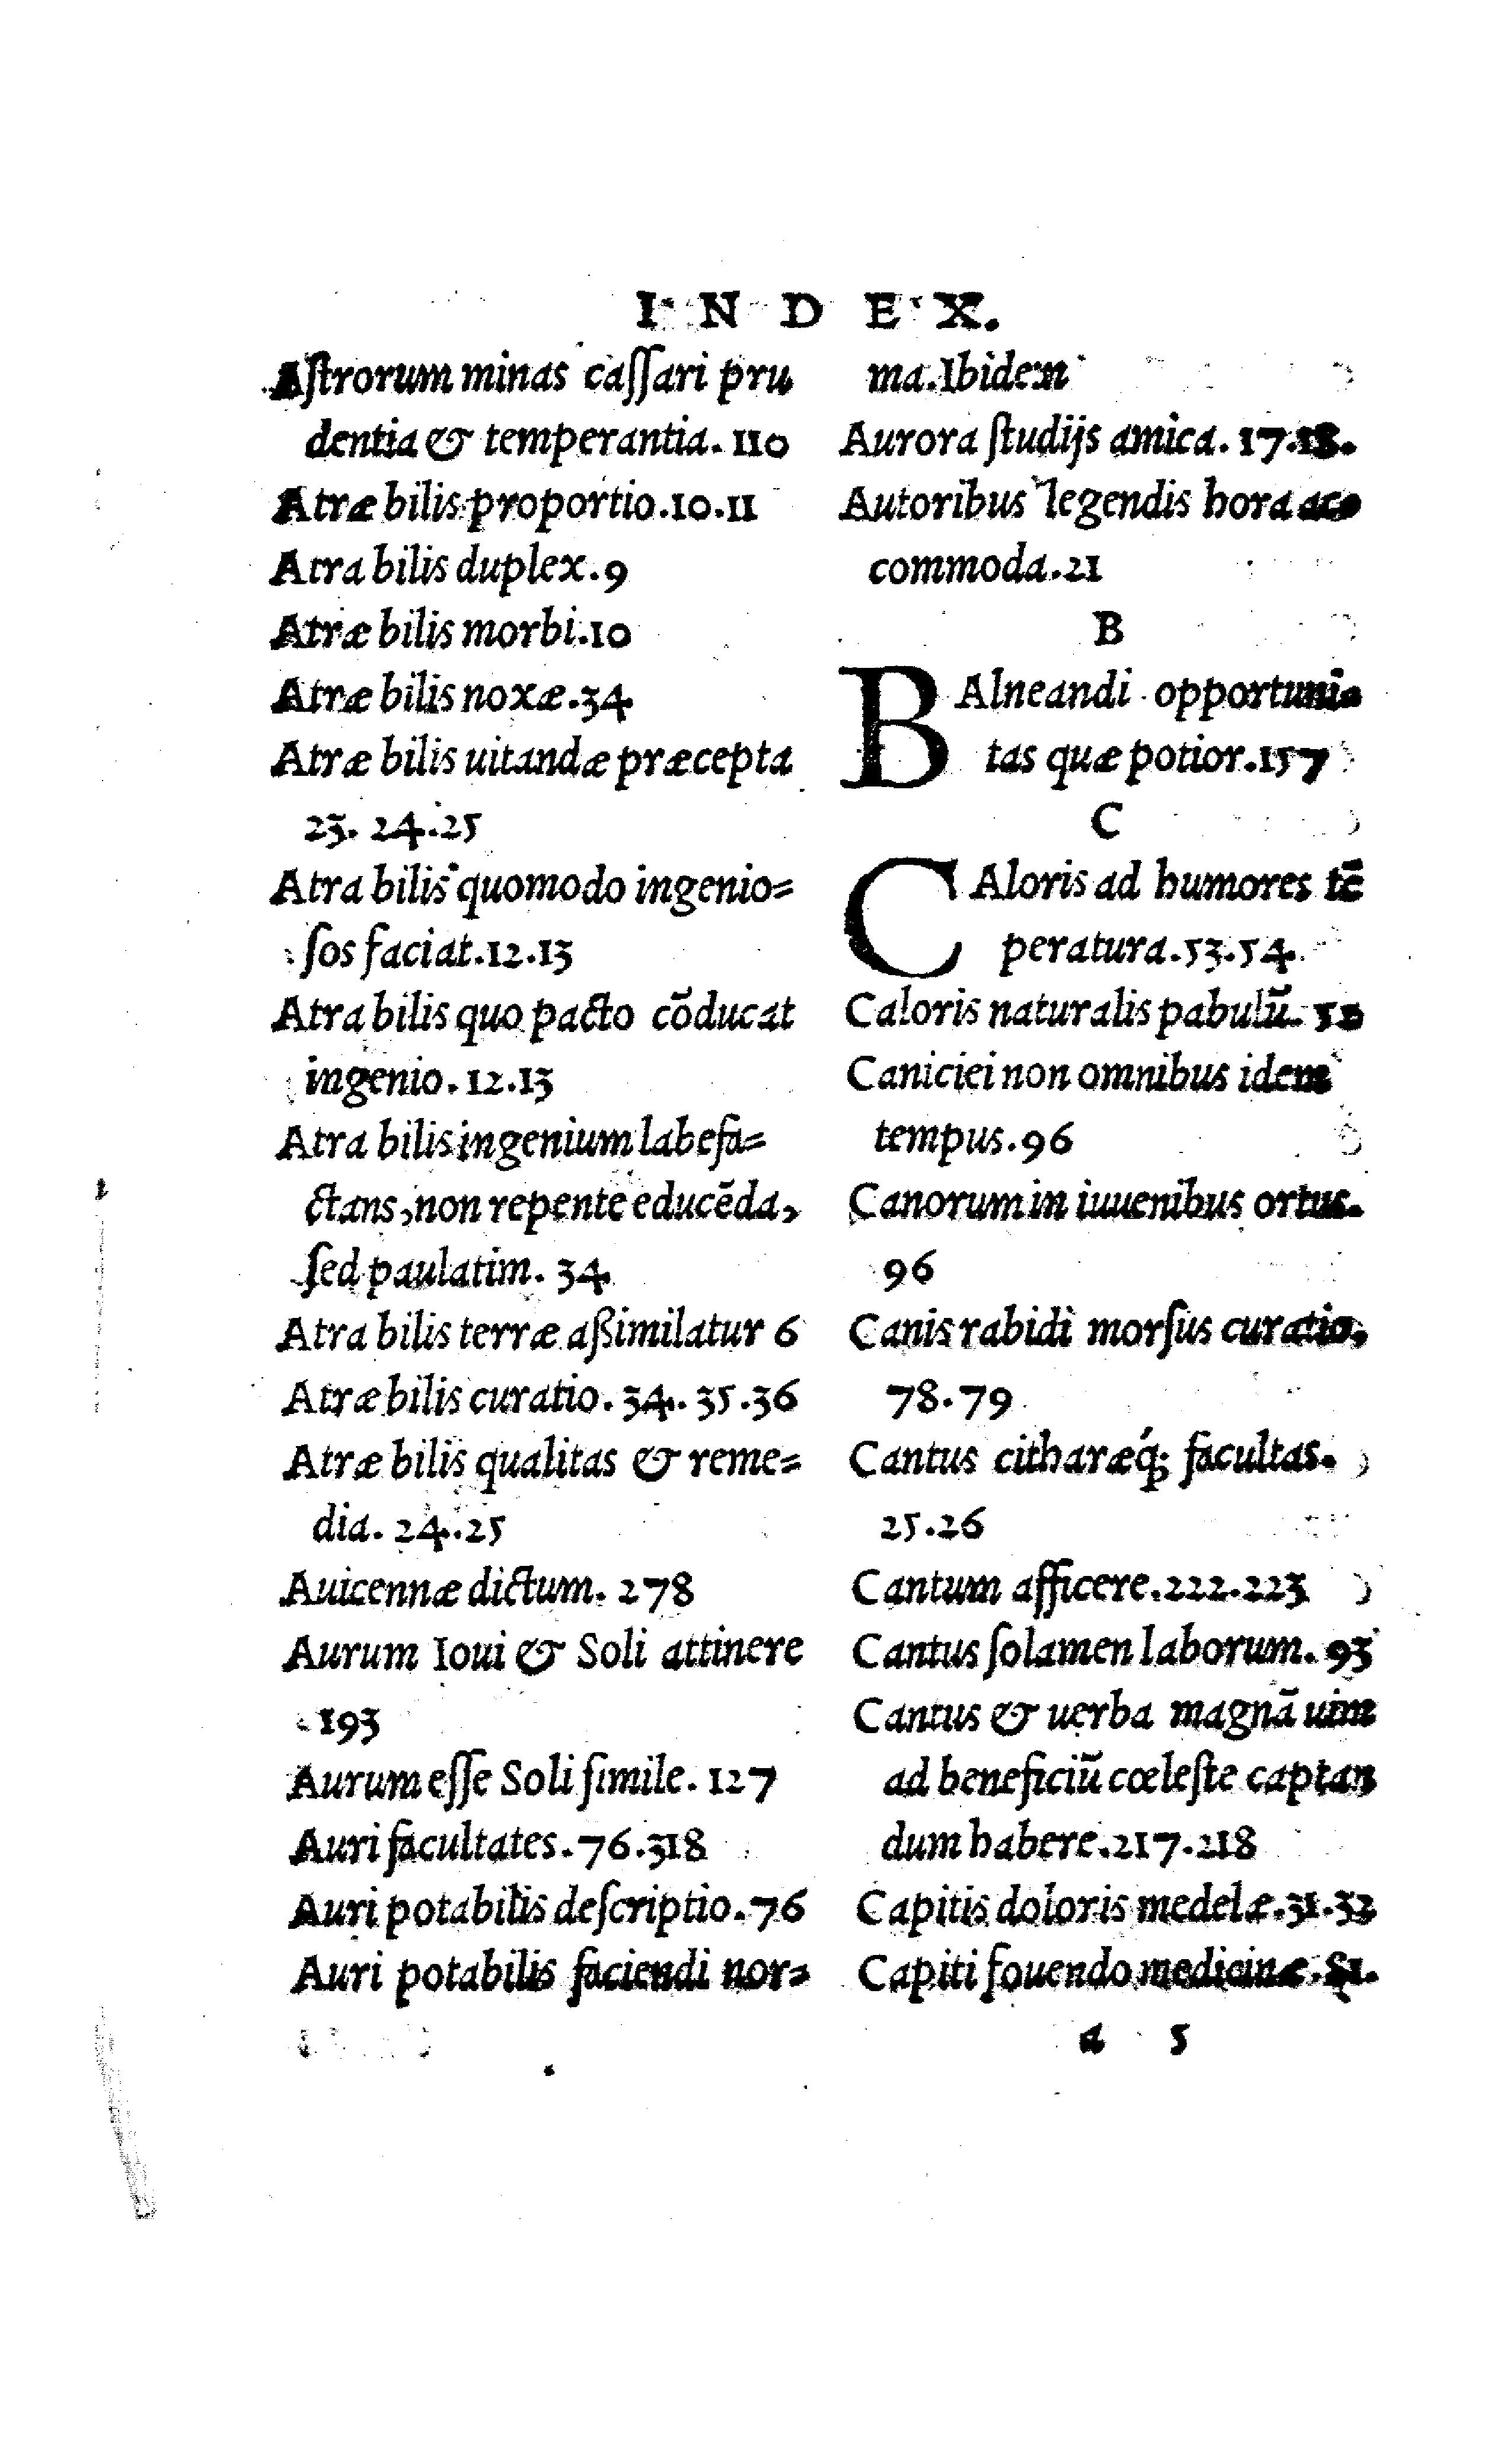 INDEX.
Aſtrorum minas caſſari pru
dentia & temperantia. 110
Atræ bilis proportio.10.11
Atra bilis duplex.9
Atræ bilis morbi.10
Atræ bilis noxæ.34
Atræ bilis uitandæ præcepta
23. 24.25
Atra bilis quomodo ingenio=
ſos faciat.12.13
Atra bilis quo pacto cōducat
ingenio.12.13
Atra bilis ingenium labefa=
ctans, non repente educēda,
ſed paulatim. 34
Atra bilis terræ aßimilatur 6
Atræ bilis curatio. 34. 35.36
Atræ bilis qualitas & reme=
dia. 24.25
Auicennæ dictum. 278
Aurum Ioui & Soli attinere
193
Aurum eſſe Soli ſimile. 127
Auri facultates.76.318
Auri potabilis deſcriptio.76
Auri potabilis faciendi nor=
ma.Ibidem
Aurora ſtudijs amica. 17.18.
Autoribus legendis hora ac=
commoda.21
B
BAlneandi opportuni=
tas quæ potior.157
C
CAloris ad humores tē
peratura.53.54
Caloris naturalis pabulū.
Caniciei non omnibus idem
tempus.96
Canorum in iuuenibus ortus.
96
Canis rabidi morſus curatio,
78.79
Cantus citharæq́; facultas.
25.26
Cantum afficere.222.223
Cantus ſolamen laborum. 93
Cantus & uerba magnā uim
ad beneficiū cœleſte captan
dum habere.217.218
Capitis doloris medelæ.31.32
Capiti fouendo medicinæ.81.
a 5